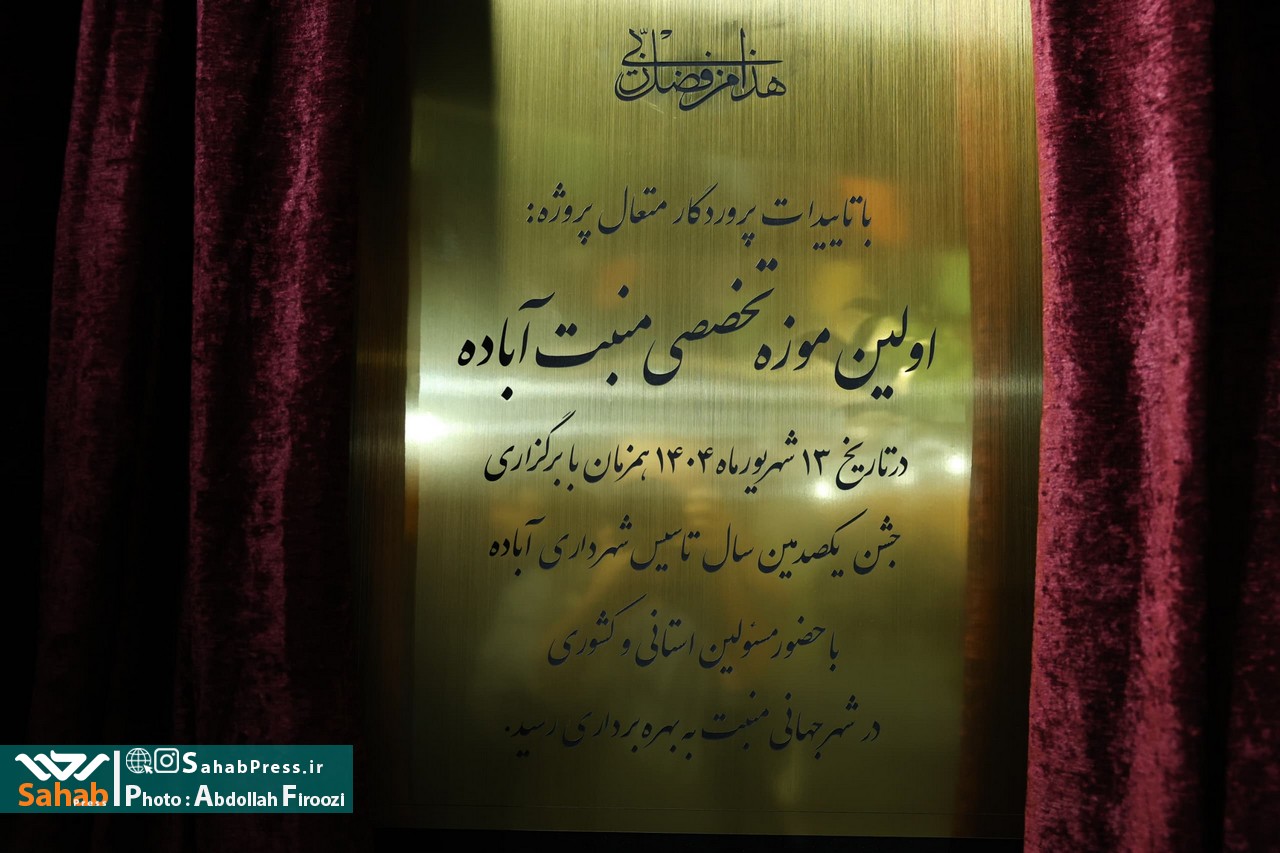 هذا من فضل ربی
با تاییدات پروردگار متعال پروژه:
اولین موزه تخصصی منبت آباده
در تاریخ ۱۳ شهریور ماه ۱۴۰۴ همزمان با برگزاری
جشن یکصدمین سال تاسیس شهرداری آباده
با حضور مسئولین استانی و کشوری
در شهر جهانی منبت به بهره برداری رسید.
سحاب SahabPress.ir
Sahab Press Photo : Abdollah Firoozi